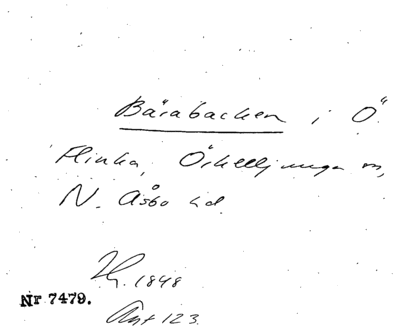 Bärabacken i Ö
Flinka, Örkelljunga sn,
N. Åsbo hd.
H. 1848
Nr 7479.
Ant 123.